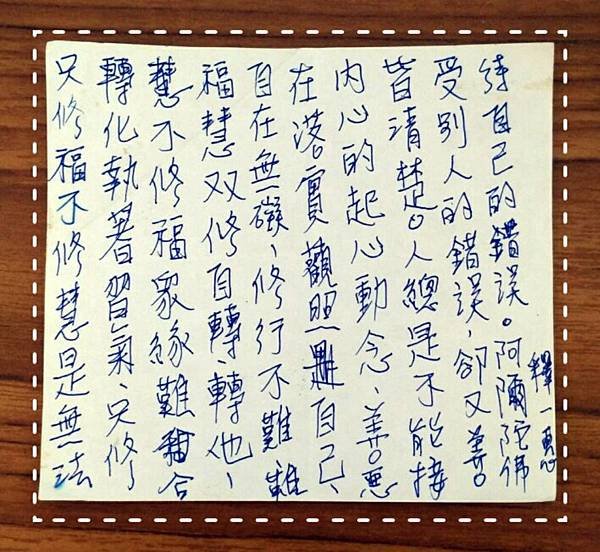 只修福不修慧是無法
轉化執著習氣、只修
慧不修福眾緣難合
福慧双修自轉、轉他、
自在無礙、修行不難難
在落實觀照自己、
內心的起心動念、善惡
皆清楚。人總是不能接
受別人的錯誤，卻又善
待自己的錯誤。阿彌陀佛
釋一